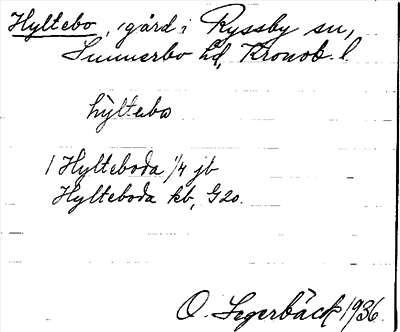 Hyltebo, gård i Ryssby sn,
Sunnerbo hd, Kronob. l.
hyltebo
1 Hylteboda 1/4 jb
Hylteboda kb, G20.
O. Segerbäck 1936.